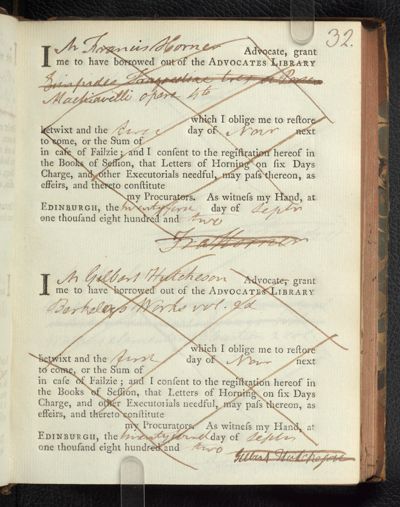 32.
I Mr Francis Horner Advocate, grant
me to have borrowed out of the ADVOCATES LIBRARY
Machiavelli opere 4to
which I oblige me to reſtore
betwixt and the first day of Novr next
to come, or the Sum of
in caſe of Failzie; and I conſent to the regiſtration hereof in
the Books of Seſſion, that Letters of Horning on ſix Days
Charge, and other Executorials needful, may paſs thereon, as
effeirs, and thereto conſtitute
my Procurators. As witneſs my Hand, at
EDINBURGH, the twenty first day of Septr
one thouſand eight hundred and two
Fra Horner
I Mr Gilbert Hutcheson Advocate, grant
me to have borrowed out of the ADVOCATES LIBRARY
Berkeleys Works vol. 2d
which I oblige me to reſtore
betwixt and the first day of Novr next
to come, or the Sum of
in caſe of Failzie; and I conſent to the regiſtration hereof in
the Books of Seſſion, that Letters of Horning on ſix Days
Charge, and other Executorials needful, may paſs thereon, as
effeirs, and thereto conſtitute
my Procurators. As witneſs my Hand, at
EDINBURGH, the day of Septr
one thouſand eight hundred and two
Gilbert Hutcheson